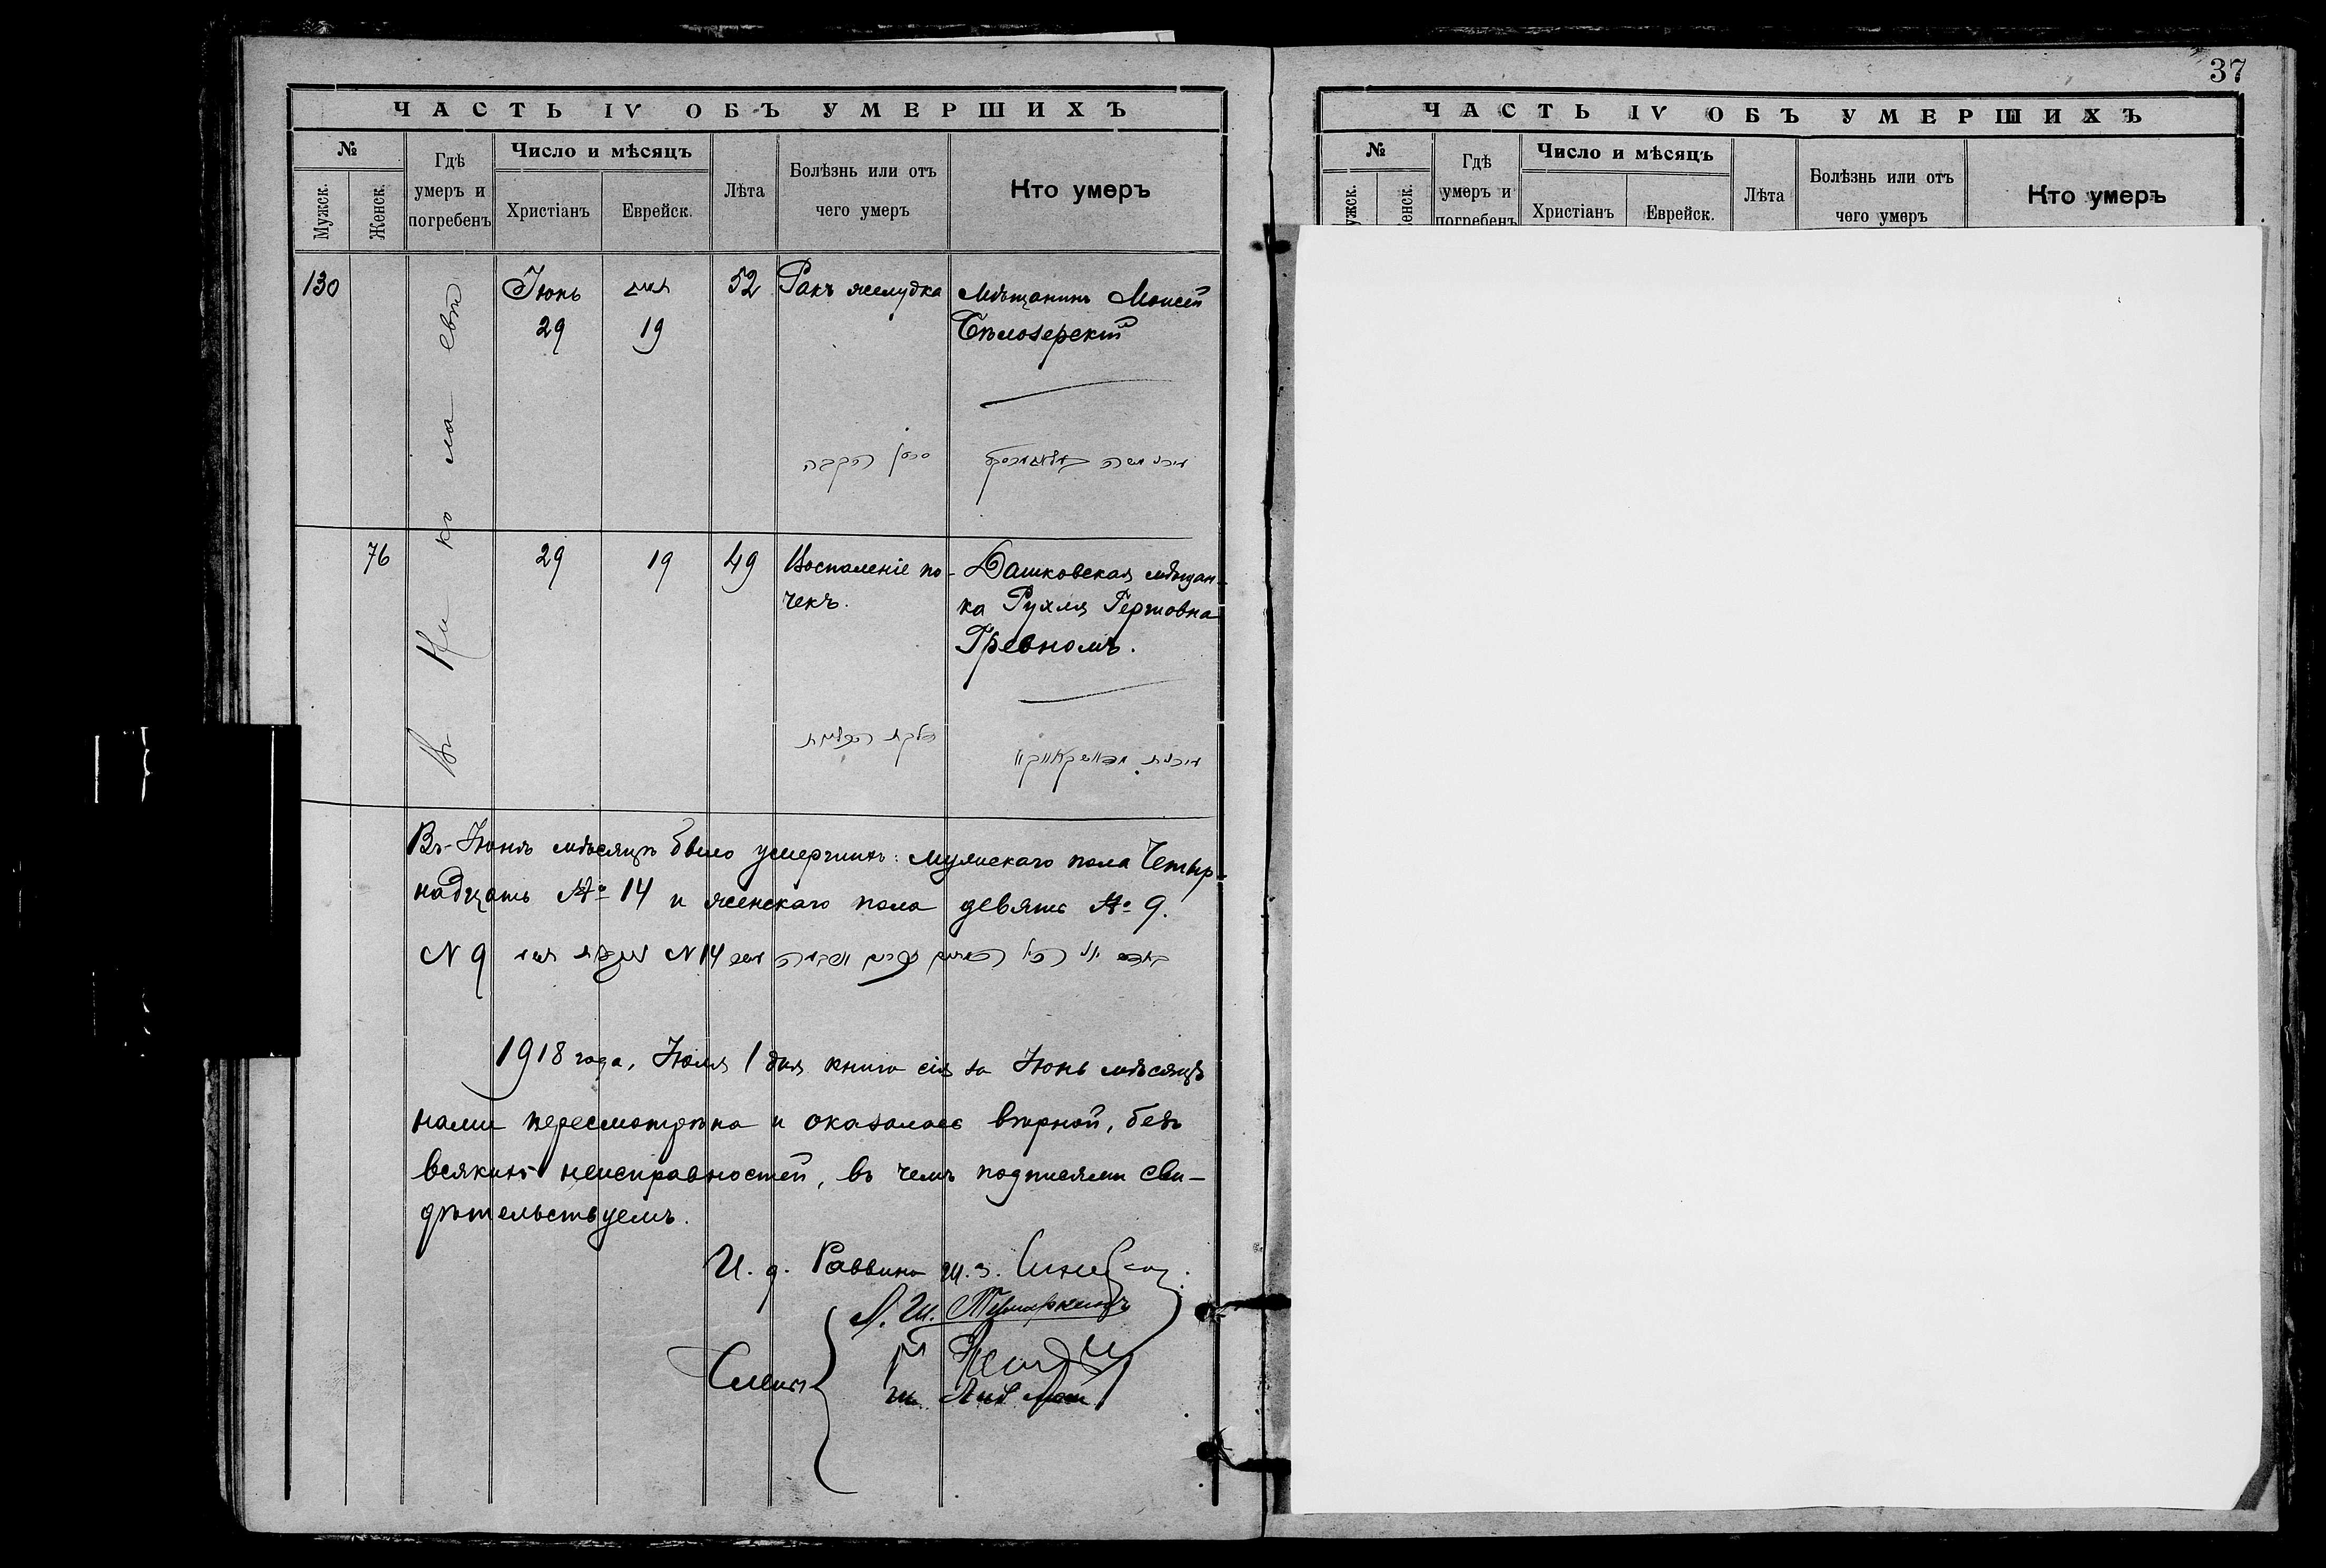 37
ЧАСТЬ IV ОБЪ УМЕРШИХЪ
№
Мужск.
Женск.
Гдѣ
умеръ и
погребенъ
Число и мѣсяцъ
Христіанъ
Еврейск.
Лѣта
Болѣзнь или отъ
чего умеръ
Кто умеръ
130
Въ Николаевѣ
Іюнь
29
תמוז
19
52
Ракъ желудка
Мѣщанинъ Моисей
Бѣлозерскій
סרטן הקבה
76
29
19
49
Воспаленіе по-
чекъ.
Дашковская мѣщан-
ка Рухля
דלקת הכליות
Въ Іюнѣ мѣсяцѣ было умершихъ: мужскаго пола Четыр-
надцать № 14 и женскаго пола девять № 9.
N 14
N 9
1918 года, Іюля 1 дня книга сія за Іюнь мѣсяцъ
нами пересмотрѣна и оказалась вѣрной, безъ
всякихъ неисправностей, въ чемъ подписями сви-
дѣтельствуемъ.
И. д. Раввина
Члены
ЧАСТЬ IV ОБЪ УМЕРШИХЪ
№
ужск.
енск.
Гдѣ
умеръ и
погребенъ
Число и мѣсяцъ
Христіанъ
Еврейск.
Лѣта
Болѣзнь или отъ
чего умеръ
Кто умеръ